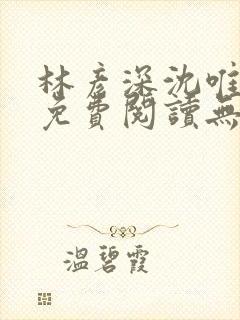 林彥深沈唯
免費閱讀無
溫碧霞